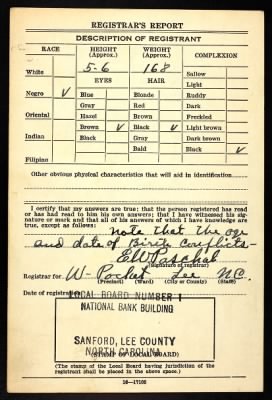 REGISTRAR'S REPORT
DESCRIPTION OF REGISTRANT
RACE HEIGHT (Approx.) WEIGHT (Approx.) COMPLEXION
White 5-6 168 Sallow
EYES HAIR Light
Negro ✓ Blue Blonde Ruddy
Gray Red Dark
Oriental Hazel Brown Freckled
Brown ✓ Black ✓ Light brown
Indian Black Gray Dark brown
Bald Black ✓
Filipino
Other obvious physical characteristics that will aid in identification
I certify that my answers are true; that the person registered has read
or has had read to him his own answers; that I have witnessed his sig-
nature or mark and that all of his answers of which I have knowledge are
true, except as follows:
Note that the age
and date of Birth conflicts-
E W Paschal
(Signature of registrar)
Registrar for W- Pocket Lee N.C.
(Precinct) (Ward) (City or County) (State)
Date of registration
LOCAL BOARD NUMBER 1
NATIONAL BANK BUILDING
SANFORD, LEE COUNTY
NORTH CAROLINA
(STAMP OF LOCAL BOARD)
(The stamp of the Local Board having jurisdiction of the
registrant shall be placed in the above space.)
16-17105